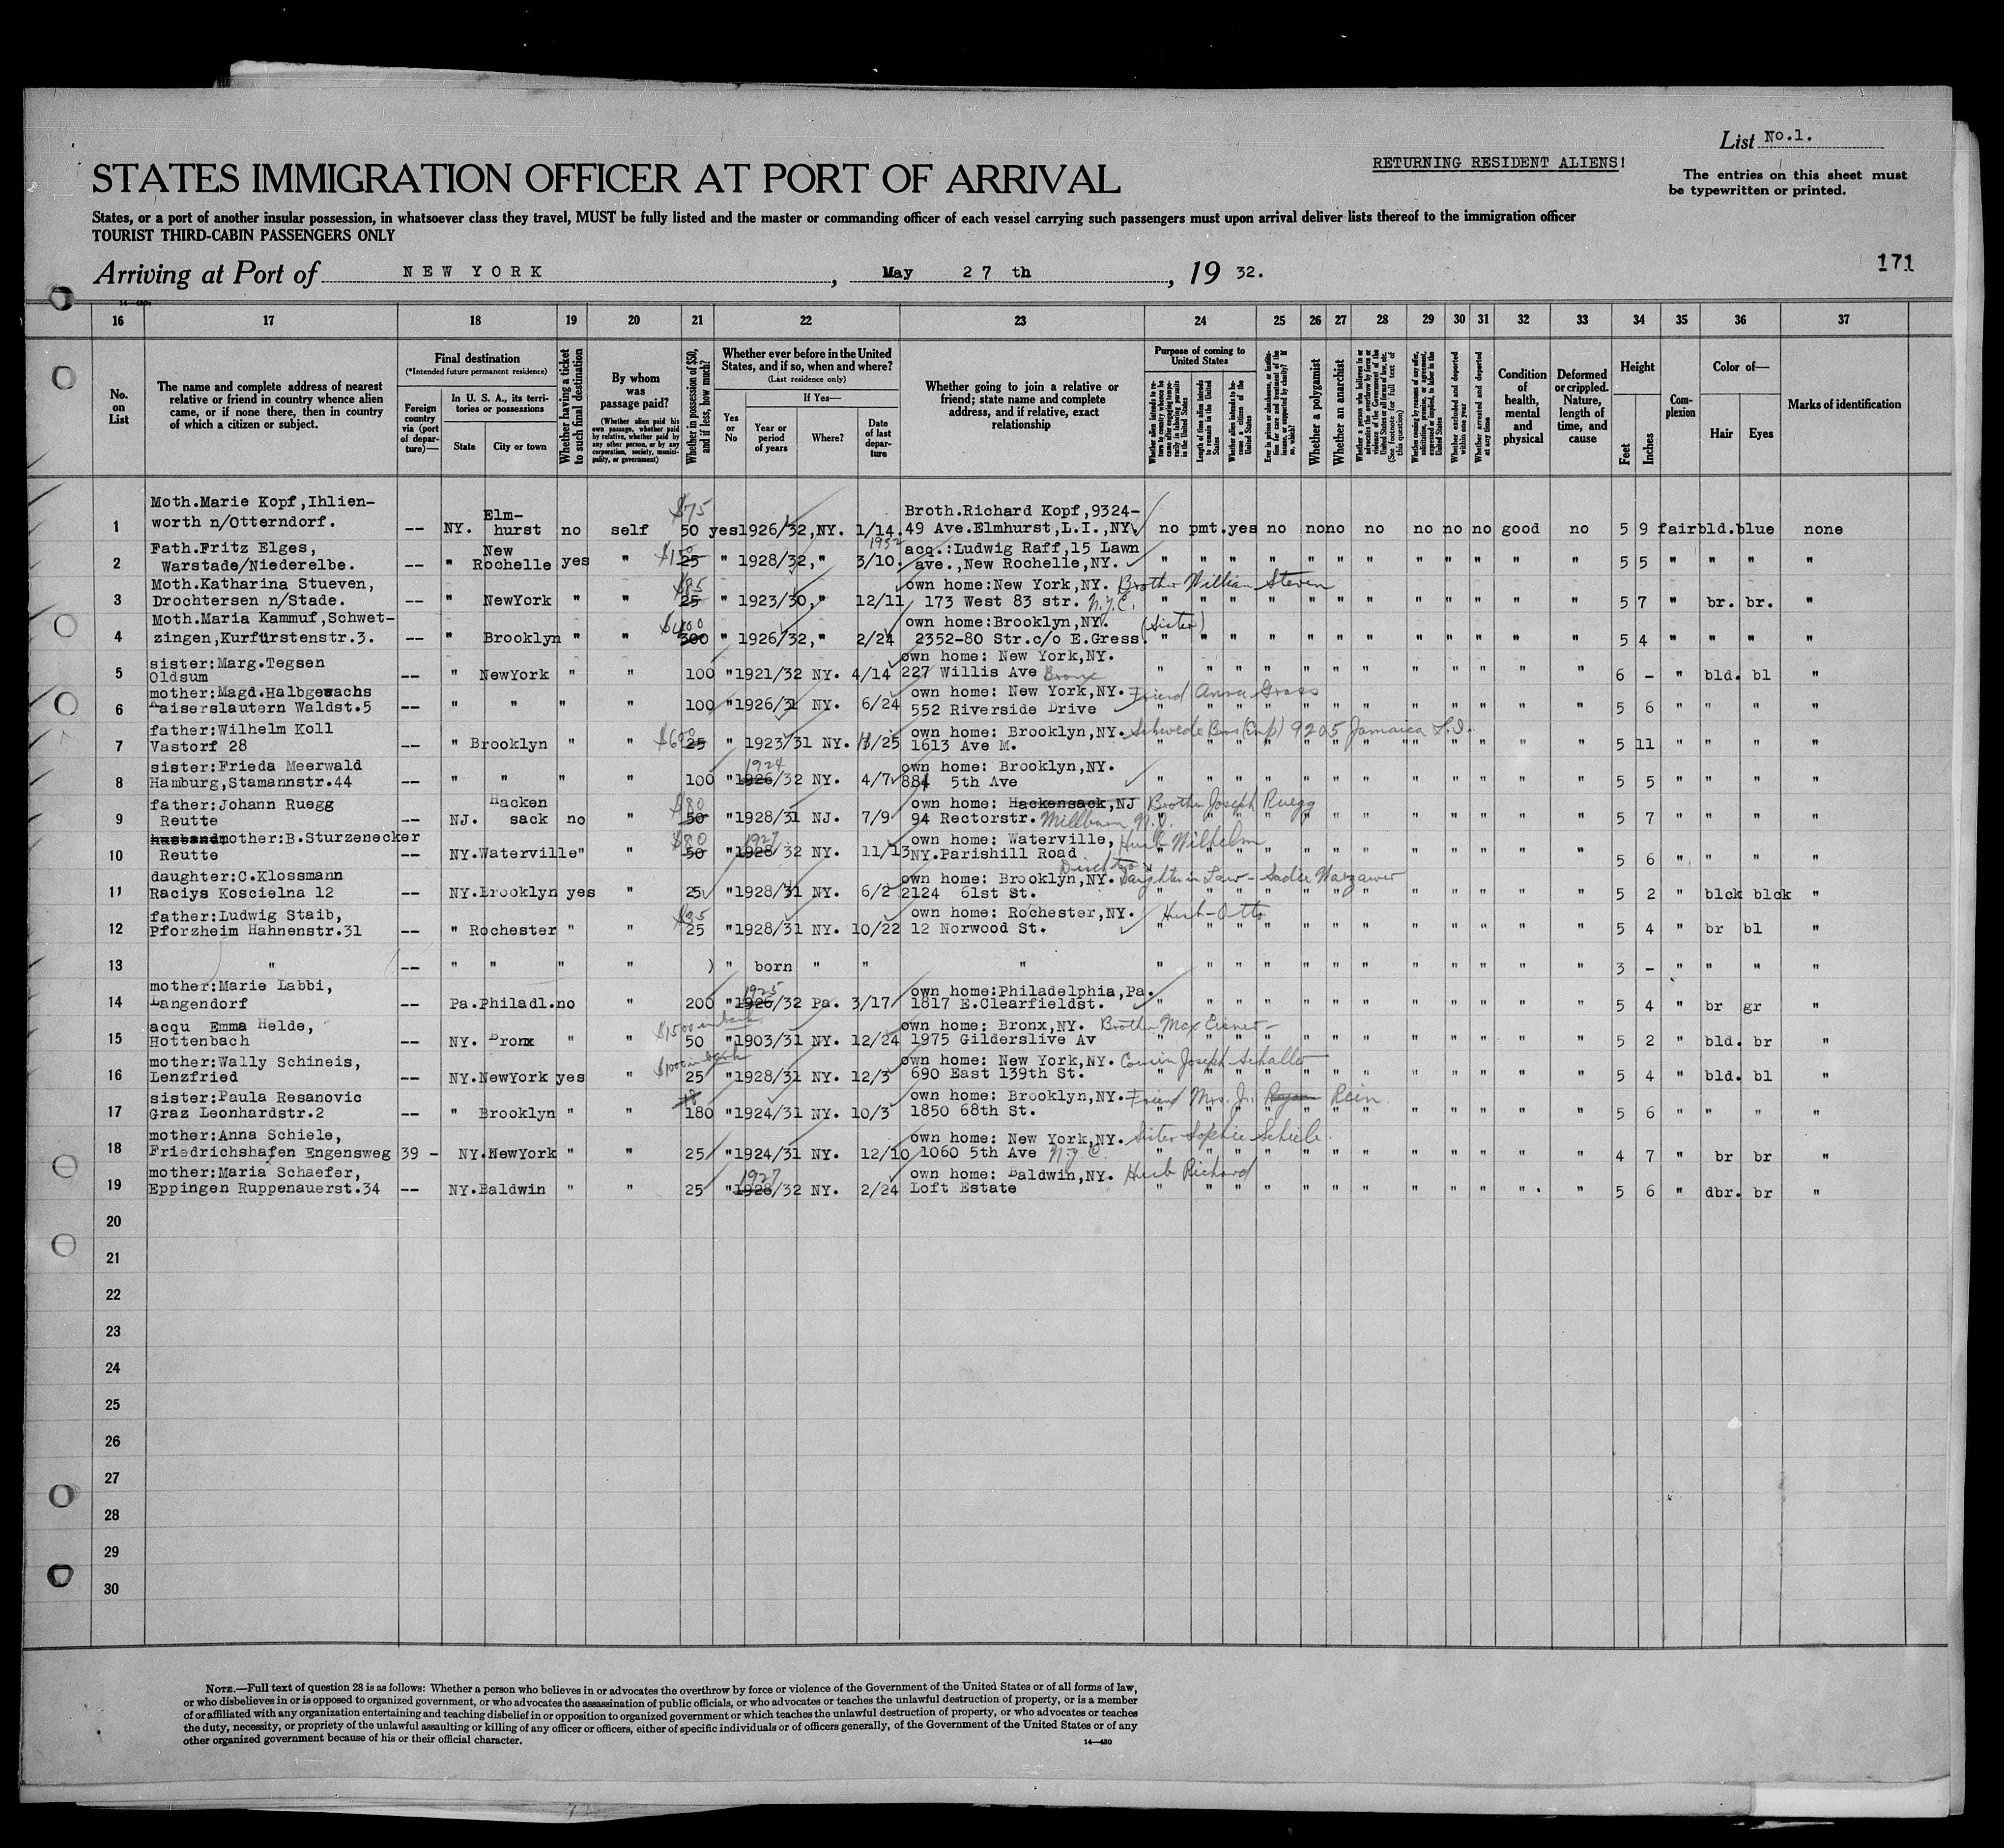 List No.1.
RETURNING RESIDENT ALIENS!
The entries on this sheet must
be typewritten or printed.
STATES IMMIGRATION OFFICER AT PORT OF ARRIVAL
States, or a port of another insular possession, in whatsoever class they travel, MUST be fully listed and the master or commanding officer of each vessel carrying such passengers must upon arrival deliver lists thereof to the immigration officer
TOURIST THIRD-CABIN PASSENGERS ONLY
Arriving at Port of NEW YORK, May 27 th, 19 32.
171
16 17 18 19 20 21 22 23 24 25 26 27 28 29 30 31 32 33 34 35 36 37
No. on List
The name and complete address of nearest relative or friend in country whence alien came, or if none there, then in country of which a citizen or subject.
Final destination
(*Intended future permanent residence)
Foreign country via (port of departure)—
In U. S. A., its territories or possessions
State
City or town
Whether having a ticket to such final destination
By whom was passage paid?
(Whether alien paid his own passage, whether paid by relative, whether paid by any other person, or by any corporation, society, municipality, or government)
Whether in possession of $50, and if less, how much?
Whether ever before in the United States, and if so, when and where?
(Last residence only)
Yes or No
If Yes—
Year or period of years
Where?
Date of last departure
Whether going to join a relative or friend; state name and complete address, and if relative, exact relationship
Purpose of coming to United States
Length of time alien intends to remain in the United States
Whether alien intends to become a citizen of the United States
Whether a polygamist
Whether an anarchist
Whether excluded and deported within one year
Whether arrested and deported at any time
Condition of health, mental and physical
Deformed or crippled. Nature, length of time, and cause
Height
Feet
Inches
Complexion
Color of—
Hair
Eyes
Marks of identification
Moth.Marie Kopf,Ihlien- Elm- $75 Broth.Richard Kopf,9324-
1 worth n/Otterndorf. -- NY. hurst no self 50 yes1926/32,NY. 1/14. 49 Ave.Elmhurst,L.I.,NY. no pmt.yes no no no no no no no good no 5 9 fair bld.blue none
Fath.Fritz Elges, New 1932 acq.:Ludwig Raff,15 Lawn
2 Warstade/Niederelbe. -- " Rochelle yes " 25 " 1928/32," 3/10. ave.,New Rochelle,NY. " " " " " " " " " " " " 5 5 " " " "
Moth.Katharina Stueven, own home:New York,NY. Brother William Steven
3 Drochtersen n/Stade. -- " NewYork " " 25 " 1923/30," 12/11 173 West 83 str. N.Y.C. " " " " " " " " " " " " 5 7 " br. br. "
Moth.Maria Kammuf,Schwet- $400 own home:Brooklyn,NY. (Sister)
4 zingen,Kurfürstenstr.3. -- " Brooklyn " " 300 " 1926/32," 2/24 2352-80 Str.c/o E.Gress. " " " " " " " " " " " " 5 4 " " " "
sister:Marg.Tegsen own home: New York,NY.
5 Oldsum -- " NewYork " " 100 "1921/32 NY. 4/14 227 Willis Ave Bronx " " " " " " " " " " " " 6 - " bld. bl "
mother:Magd.Halbgewachs own home: New York,NY. Friend Anna Grass
6 Kaiserslautern Waldst.5 -- " " " " 100 "1926/31 NY. 6/24 552 Riverside Drive " " " " " " " " " " " " 5 6 " " " "
father:Wilhelm Koll own home: Brooklyn,NY. Schwede Bros 9205 Jamaica L.I.
7 Vastorf 28 -- " Brooklyn " " 25 " 1923/31 NY. 8/25 1613 Ave M. " " " " " " " " " " " " 5 11 " " " "
sister:Frieda Meerwald 1924 own home: Brooklyn,NY.
8 Hamburg,Stamannstr.44 -- " " " " 100 "1926/32 NY. 4/7 884 5th Ave " " " " " " " " " " " " 5 5 " " " "
father:Johann Ruegg Hacken $80 own home: Hackensack,NJ Brother Joseph Ruegg
9 Reutte -- NJ. sack no " 50 "1928/31 NJ. 7/9 94 Rectorstr. Millburn N.J. " " " " " " " " " " " " 5 7 " " " "
husband:mother:B.Sturzenecker $80 1927 own home: Waterville, Husb Wilhelm
10 Reutte -- NY.Waterville" " 50 "1928/32 NY. 11/13 NY.Parishill Road " " " " " " " " " " " " 5 6 " " " "
daughter:C.Klossmann own home: Brooklyn,NY. Daughter in Law - Sadie Warzawer
11 Raciys Koscielna 12 -- NY.Brooklyn yes " 25 "1928/31 NY. 6/2 2124 61st St. " " " " " " " " " " " " 5 2 " blck blck "
father:Ludwig Staib, $35 own home: Rochester,NY. Husb-Otto
12 Pforzheim Hahnenstr.31 -- " Rochester " " 25 "1928/31 NY. 10/22 12 Norwood St. " " " " " " " " " " " " 5 4 " br bl "
13 " -- " " " " ) " born " " " " " " " " " " " " " " " 3 - " " " "
mother:Marie Labbi, 1925 own home:Philadelphia,Pa.
14 Langendorf -- Pa.Philadl.no " 200 "1926/32 Pa. 3/17 1817 E.Clearfieldst. " " " " " " " " " " " " 5 4 " br gr "
acqu Emma Helde, $1500 in bank own home: Bronx,NY. Brother Max Eisner-
15 Hottenbach -- NY. Bronx " " 50 "1903/31 NY. 12/24 1975 Gilderslive Av " " " " " " " " " " " " 5 2 " bld. br "
mother:Wally Schineis, $1000 in bank own home: New York,NY. Cousin Joseph Schaller
16 Lenzfried -- NY.NewYork yes " 25 "1928/31 NY. 12/3 690 East 139th St. " " " " " " " " " " " " 5 4 " bld. bl "
sister:Paula Resanovic own home: Brooklyn,NY. Friend Mrs. Jn. Rein
17 Graz Leonhardstr.2 -- " Brooklyn " " 180 "1924/31 NY. 10/3 1850 68th St. " " " " " " " " " " " " 5 6 " " " "
mother:Anna Schiele, own home: New York,NY. Sister Sophie Schiele.
18 Friedrichshafen Engensweg 39 - NY.NewYork " " 25 "1924/31 NY. 12/10 1060 5th Ave N.Y.C. " " " " " " " " " " " " 4 7 " br br "
mother:Maria Schaefer, 1927 own home: Baldwin,NY. Husb Richard
19 Eppingen Ruppenauerst.34 -- NY.Baldwin " " 25 "1928/32 NY. 2/24 Loft Estate " " " " " " " " " " " " 5 6 " dbr. br "
20
21
22
23
24
25
26
27
28
29
30
NOTE.—Full text of question 28 is as follows: Whether a person who believes in or advocates the overthrow by force or violence of the Government of the United States or of all forms of law,
or who disbelieves in or is opposed to organized government, or who advocates the assassination of public officials, or who advocates or teaches the unlawful destruction of property, or is a member
of or affiliated with any organization entertaining and teaching disbelief in or opposition to organized government or which teaches the unlawful destruction of property, or who advocates or teaches
the duty, necessity, or propriety of the unlawful assaulting or killing of any officer or officers, either of specific individuals or of officers generally, of the Government of the United States or of any
other organized government because of his or their official character.
14—430